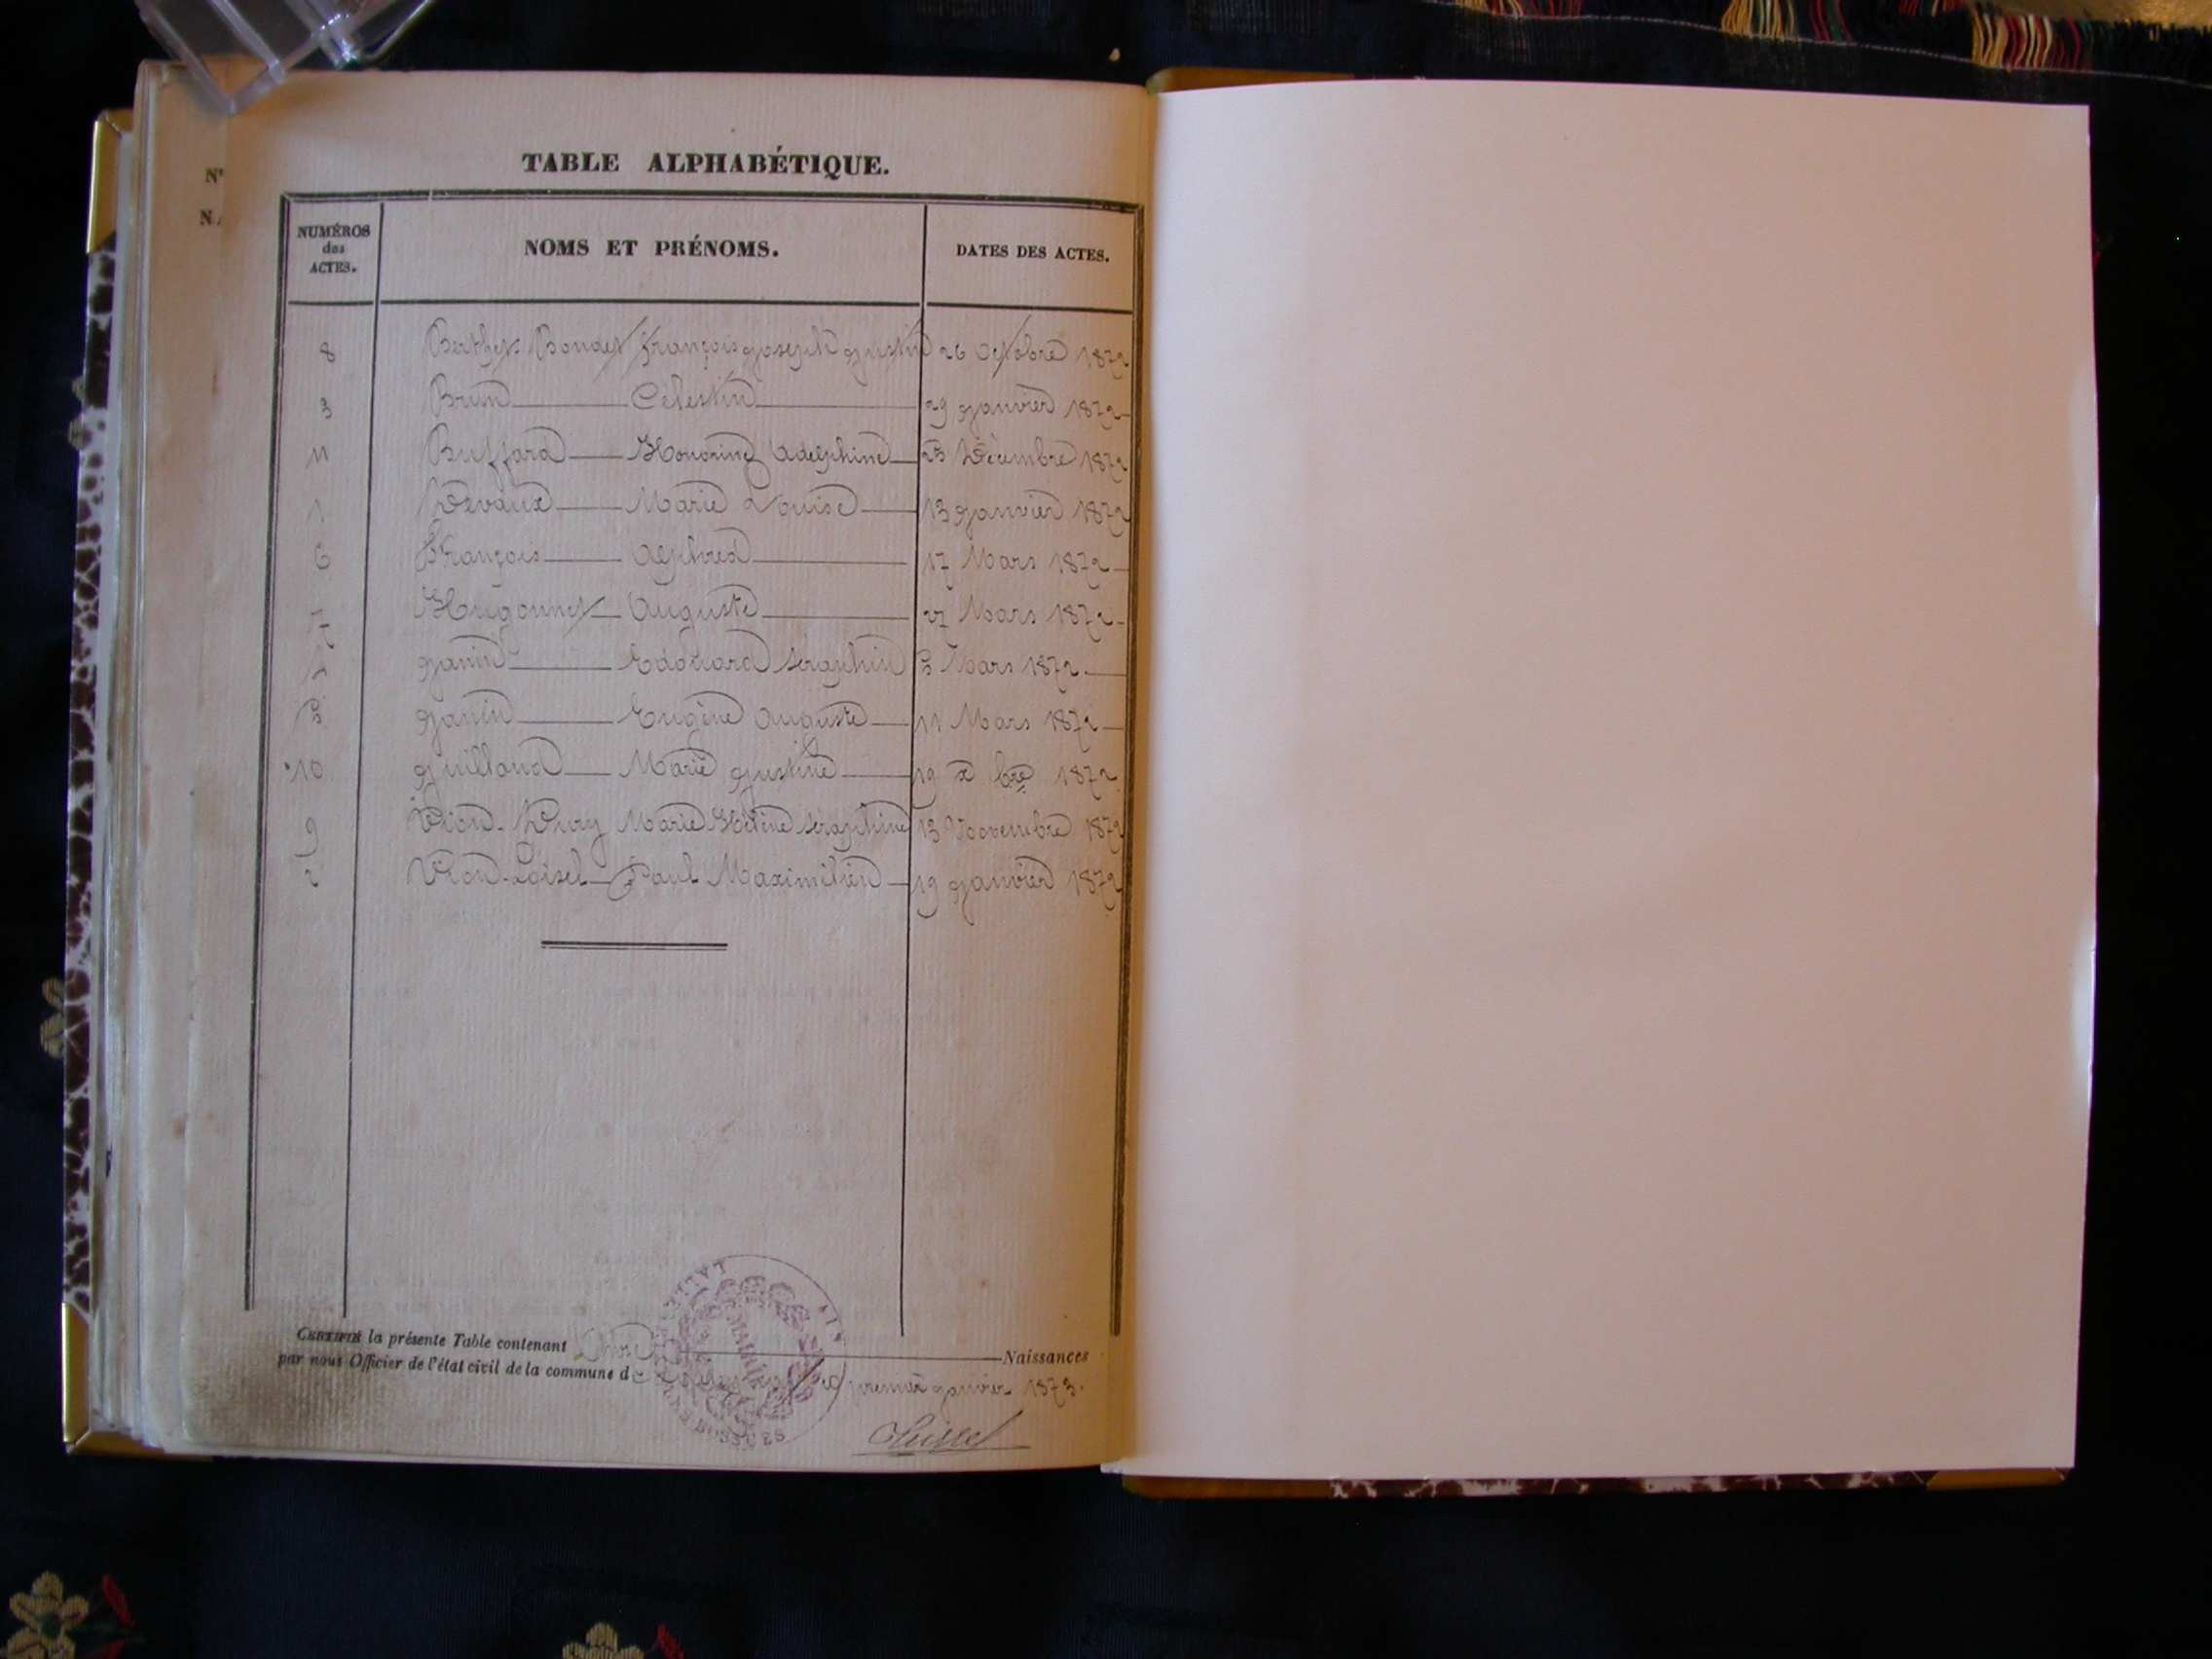 Nᵒ
N.
TABLE ALPHABÉTIQUE.
NUMÉROS
des
ACTES.
NOMS ET PRÉNOMS.
DATES DES ACTES.
8 Berthet-Bondet françois joseph justin 26 Octobre 1872
3 Brun Célestin 29 janvier 1872
11 Buffard Honorine Adelphine 23 Décembre 1872
1 Devaux Marie Louise 13 janvier 1872
6 François Alphred 17 Mars 1872
7 Hugonnet Auguste 27 Mars 1872
janin Edouard séraphin 5 Mars 1872
5 janin Eugène Auguste 11 Mars 1872
10 juilland Marie justine 19 xbre 1872
9 Vion-Dury Marie Hélène séraphine 13 Novembre 1872
2 Vion-Loisel Paul Maximilien 19 janvier 1872
CERTIFIÉ la présente Table contenant Naissances
par nous Officier de l'état civil de la commune de premier janvier 1873.
MAIRIE